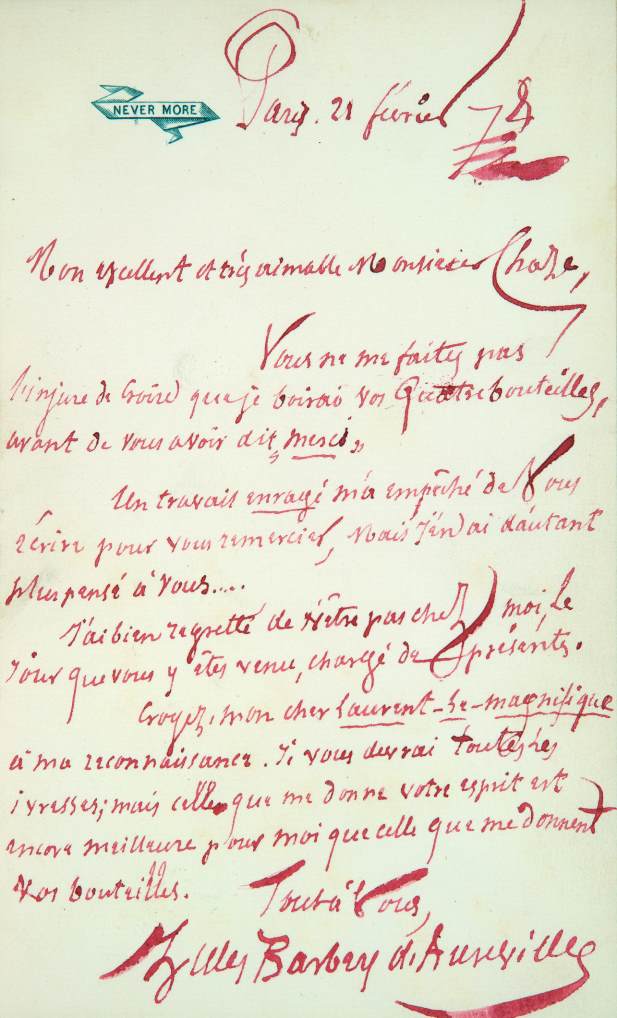 NEVER MORE
Paris. 21 février 78
Mon excellent et très aimable Monsieur
Vous ne me faites pas
l'injure de croire que je boirai vos Quatre bouteilles,
avant de vous avoir dit „merci„
Un travail enragé m'a empêché de Vous
écrire pour vous remercier, Mais j'en ai d'autant
plus pensé à vous....
J'ai bien regretté de n'être pas chez moi, le
jour que vous y êtes venu, chargé de présents.
Croyez, mon cher Laurent-le-magnifique
à ma reconnaissance. Je vous devrai toutes les
ivresses; mais celle que me donne votre esprit est
encore meilleure pour moi que celle que me donnent
Vos bouteilles.
Tout à Vous,
Jules Barbey d'Aurevilly